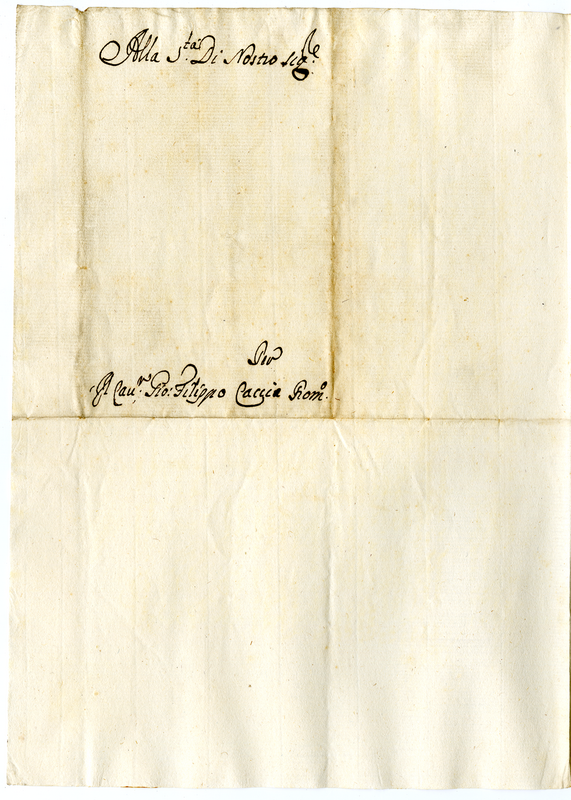 Alla S.ta Di Nostro Sig.re
Per
Il Cau.re Gio: Filippo Caccia Rom.o